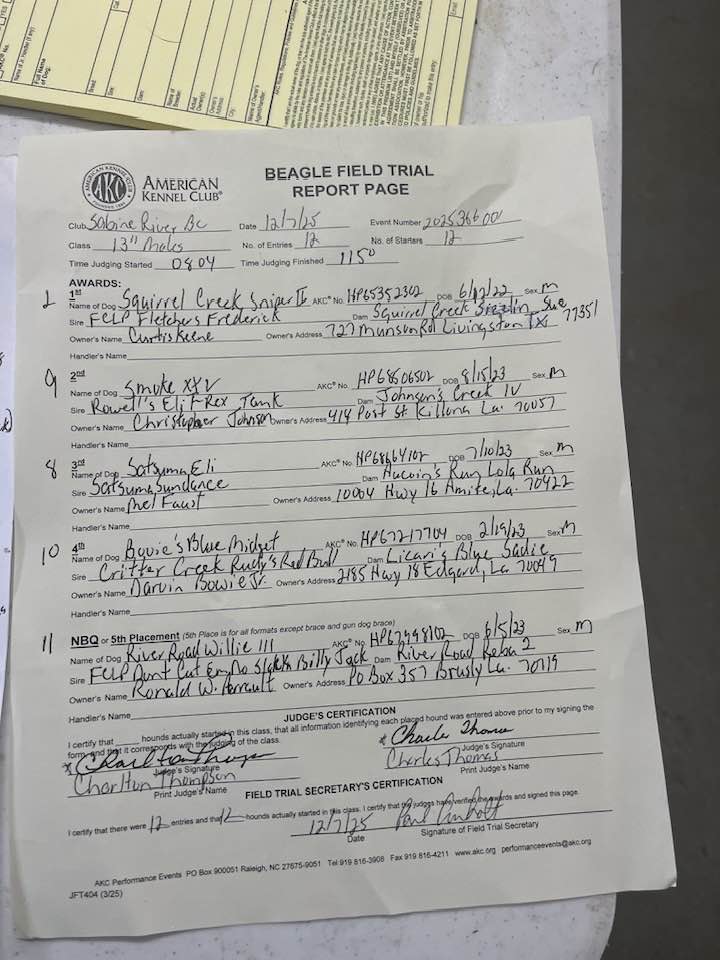 AMERICAN KENNEL CLUB
AKC
FOUNDED 1884
AMERICAN
KENNEL CLUB®
BEAGLE FIELD TRIAL
REPORT PAGE
Club Sabine River Bc Date 12/7/25 Event Number 2025366001
Class 13" Males No. of Entries 12 No. of Starters 12
Time Judging Started 0804 Time Judging Finished 1150
AWARDS:
1st
Name of Dog Squirrel Creek Sniper IV AKC® No. HP65352302 DOB 6/12/22 Sex M
Sire FCLP Fletchers Frederick Dam Squirrel Creek Sizzlin Sue
Owner's Name Curtis Keene Owner's Address 727 Munson Rd Livingston TX 77351
Handler's Name
9 2nd
Name of Dog Smoke XXV AKC® No. HP68506502 DOB 8/15/23 Sex M
Sire Rowell's Eli T-Rex Tank Dam Johnson's Creek IV
Owner's Name Christopher Johnson Owner's Address 414 Post St Killona La. 70057
Handler's Name
8 3rd
Name of Dog Satsuma Eli AKC® No. HP68664102 DOB 7/10/23 Sex M
Sire Satsuma Sundance Dam Aucoin's Run Lola Run
Owner's Name Mel Faust Owner's Address 10004 Hwy 16 Amite, La. 70422
Handler's Name
10 4th
Name of Dog Bowie's Blue Midget AKC® No. HP67217704 DOB 2/19/23 Sex M
Sire Critter Creek Rudy's Red Bull Dam Licari's Blue Sadie
Owner's Name Darvin Bowie Jr. Owner's Address 2185 Hwy 18 Edgard, La 70049
Handler's Name
11 NBQ or 5th Placement (5th Place is for all formats except brace and gun dog brace)
Name of Dog River Road Willie III AKC® No. HP67998102 DOB 6/5/23 Sex M
Sire FCLP Dunt Cut Em No Slakkh Billy Jack Dam River Road Reba 2
Owner's Name Ronald W. Perrault Owner's Address PO Box 357 Brusly La. 70719
Handler's Name
JUDGE'S CERTIFICATION
I certify that hounds actually started in this class, that all information identifying each placed hound was entered above prior to my signing the
form, and that it corresponds with the judging of the class.
* Charlton Thompson * Charles Thomas
Judge's Signature Judge's Signature
Charlton Thompson Charles Thomas
Print Judge's Name Print Judge's Name
FIELD TRIAL SECRETARY'S CERTIFICATION
I certify that there were 12 entries and that 12 hounds actually started in this class. I certify that the judges have verified the awards and signed this page.
12/7/25 Paul
Date Signature of Field Trial Secretary
AKC Performance Events PO Box 900051 Raleigh, NC 27675-9051 Tel 919 816-3908 Fax 919 816-4211 www.akc.org performanceevents@akc.org
JFT404 (3/25)